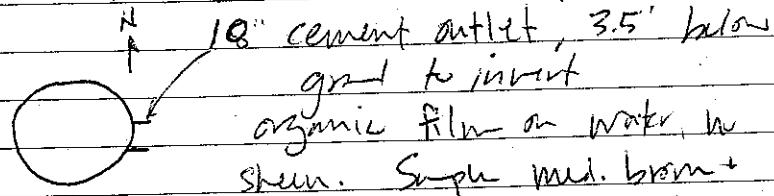 N
18" cement outlet, 3.5' below
grnd to invert
organic film on water, no
sheen. Sample med. brown +